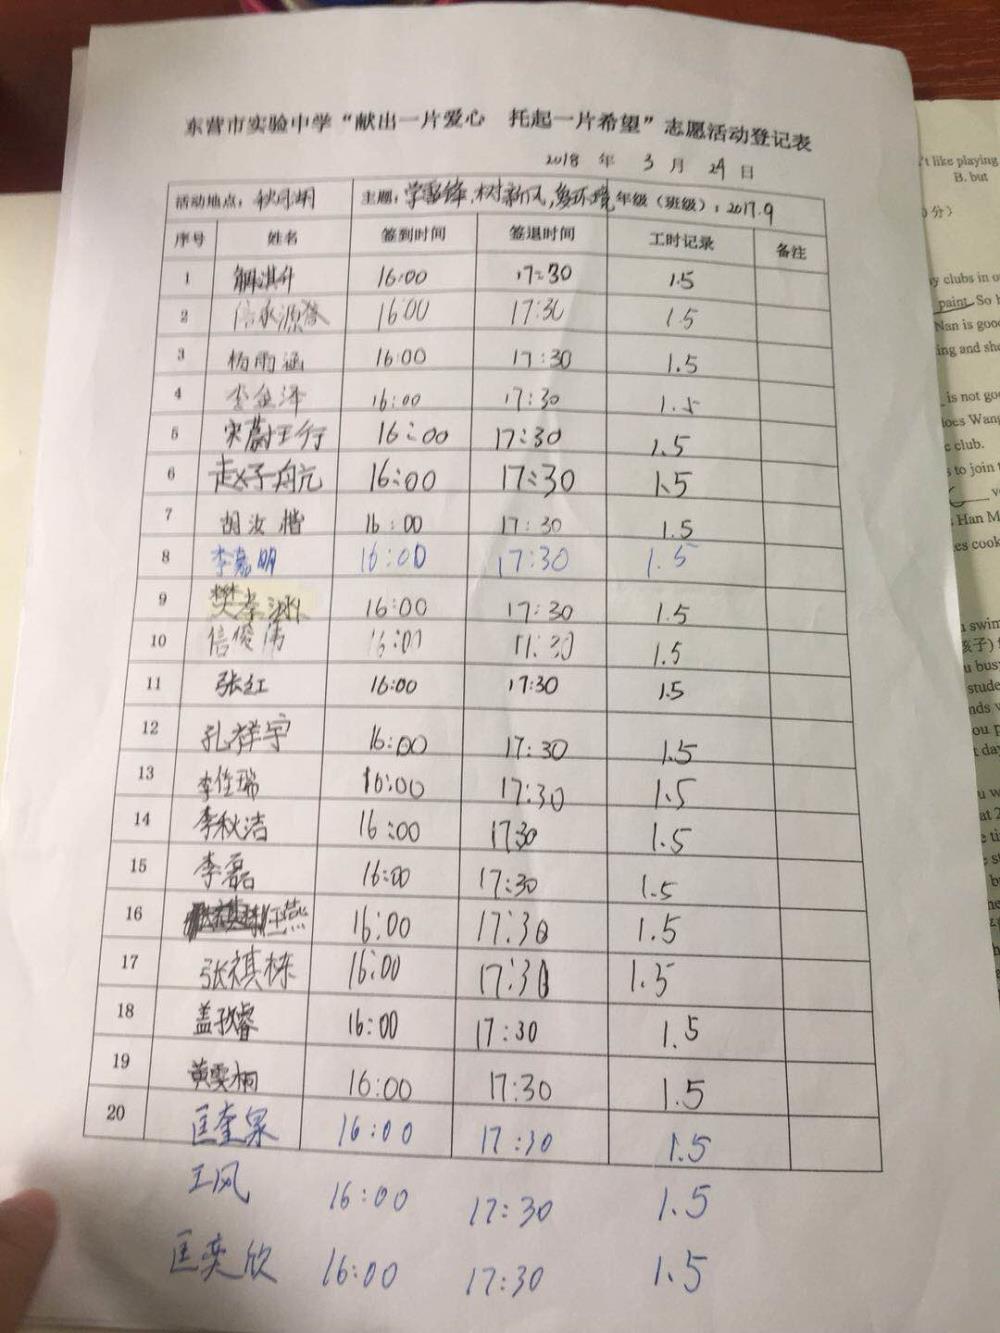 东营市实验中学“献出一片爱心 托起一片希望”志愿活动登记表
2018 年 3 月 24 日
活动地点：秋月湖 主题：学雷锋,树新风, 环境 年级（班级）：2017.9
序号 姓名 签到时间 签退时间 工时记录 备注
1 解淇升 16:00 17:30 1.5
2 信承源 16:00 17:30 1.5
3 杨雨涵 16:00 17:30 1.5
4 李金泽 16:00 17:30 1.5
5 宋蔚 16:00 17:30 1.5
6 赵子航 16:00 17:30 1.5
7 胡汝楷 16:00 17:30 1.5
8 李嘉明 16:00 17:30 1.5
9 樊孝 16:00 17:30 1.5
10 信俊伟 16:00 17:30 1.5
11 张红 16:00 17:30 1.5
12 孔祥宇 16:00 17:30 1.5
13 李佳瑞 16:00 17:30 1.5
14 李秋洁 16:00 1730 1.5
15 李磊 16:00 17:30 1.5
16 任燕 16:00 17:30 1.5
17 张祺栋 16:00 17:30 1.5
18 盖 睿 16:00 17:30 1.5
19 黄雯桐 16:00 17:30 1.5
20 匡奎杲 16:00 17:30 1.5
王风 16:00 17:30 1.5
匡奕欣 16:00 17:30 1.5
't like playing
B. but
分）
y clubs in
paint. So
Nan is good
ing and
is not
does Wang
club.
s to join
Han M
es cook
swim
孩子)
busy
stude
nds
ou p
day